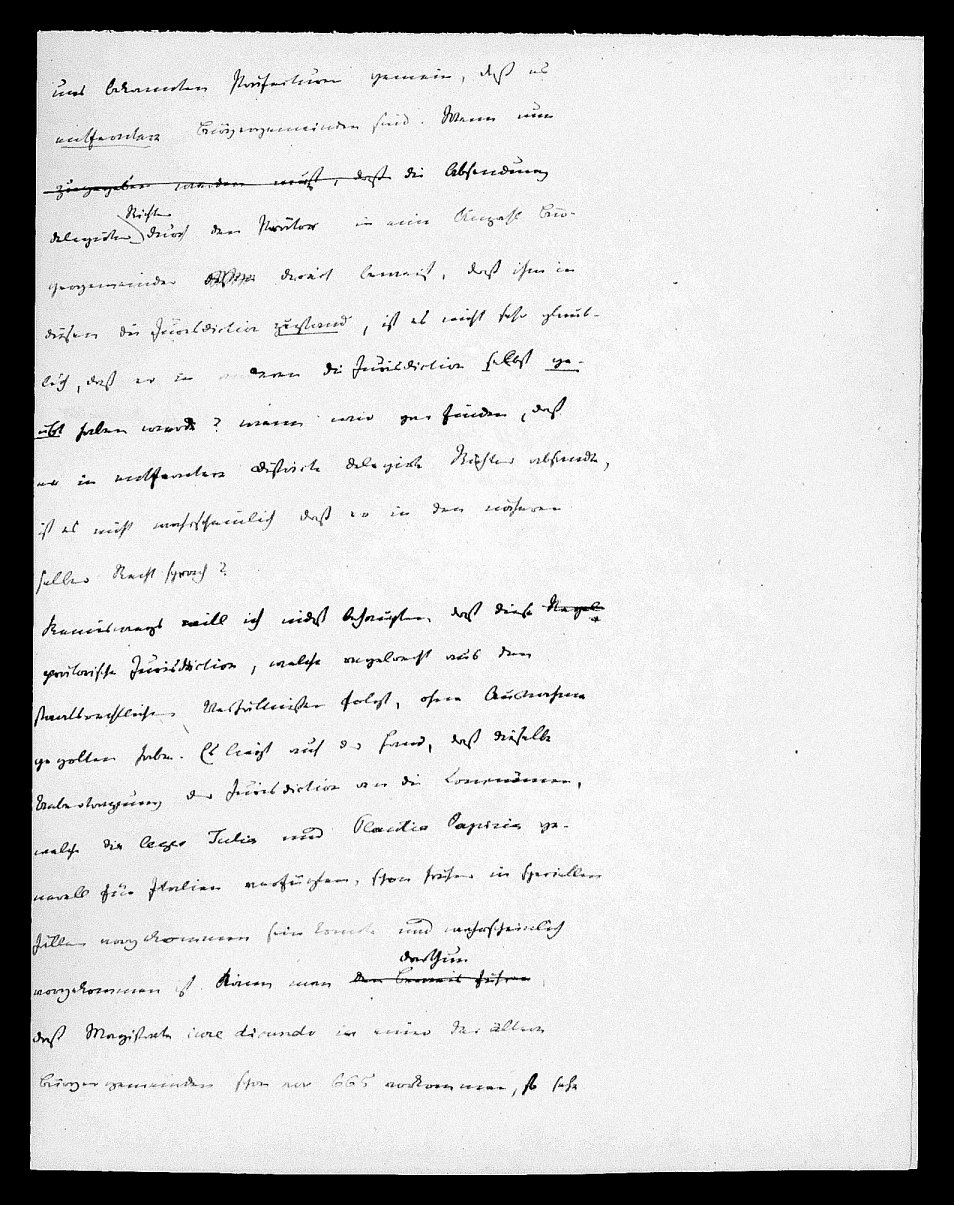 uns bekannten Präfecturen gemein, daß es
entferntere Bürgergemeinden sind. Wenn nun
zugegeben werden muß, daß die Absendung
Richter
delegirter durch den Prätor in eine Anzahl Bür-
gergemeinden derart beweist, daß ihm in
diesen die Jurisdiction zustand, ist es nicht sehr glaub-
lich, daß er in anderen die Jurisdiction selbst ge-
übt haben werde? wenn wir gar finden, daß
er in entferntere Districte delegirte Richter absandte,
ist es nicht wahrscheinlich daß er in den näheren
selber Recht sprach?
Keineswegs will ich indeß behaupten, daß diese Regel
prätorische Jurisdiction, welche regelrecht aus den
staatsrechtlichen Verhältnissen folgt, ohne Ausnahme
gegolten habe. Es liegt auf der Hand, daß dieselbe
Uebertragung der Jurisdiction an die Communen,
welche die leges Julia und Plautia Papiria ge-
nerell für Italien verfügten, schon früher in speciellen
Fällen vorgekommen sein konnte und wahrscheinlich
darthun
vorgekommen ist. Kann man den Beweis führen
daß Magistrate iure dicundo in einer der ältern
Bürgergemeinden schon vor 665 vorkommen, so sehe